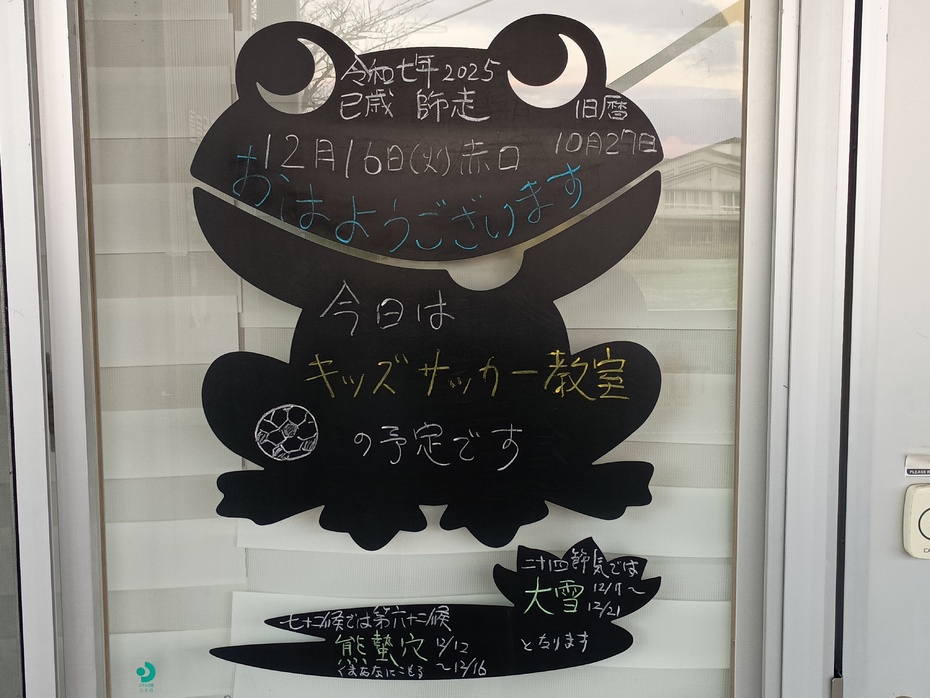 令和七年 2025
巳歳 師走
旧暦
10月27日
12月16日(火)赤口
おはようございます
今日は
キッズサッカー教室
の予定です
二十四節気では
大雪 12/7~
12/21
七十二候では第六十二候
熊蟄穴 12/12
くまあなにこもる ~12/16
となります